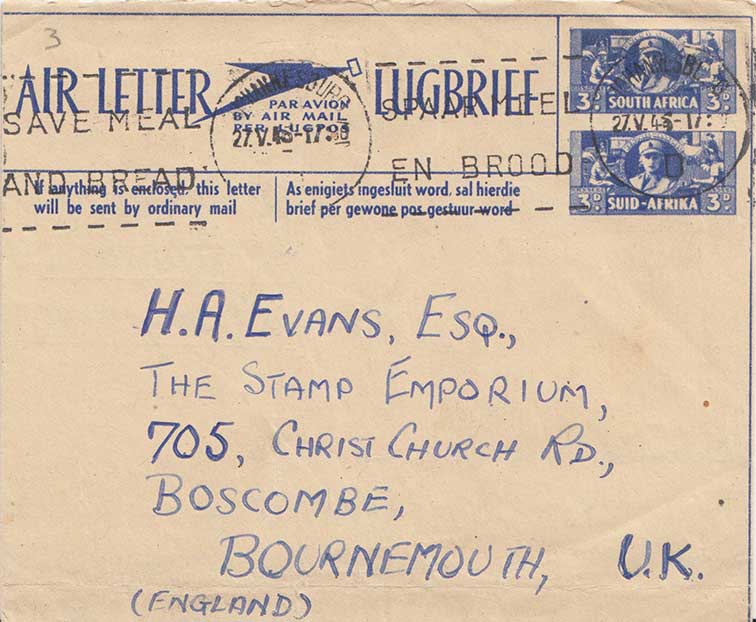 3
AIR LETTER LUGBRIEF
PAR AVION
BY AIR MAIL
PER LUGPOS
SAVE MEAL
AND BREAD
SPAAR MEEL
EN BROOD
JOHANNESBURG
27.V.46-17:30
JOHANNESBURG
27.V.46-17:
D
3D SOUTH AFRICA 3D
3D SUID-AFRIKA 3D
If anything is enclosed, this letter
will be sent by ordinary mail
As enigiets ingesluit word, sal hierdie
brief per gewone pos gestuur word
H.A. EVANS, ESQ.,
THE STAMP EMPORIUM,
705, CHRIST CHURCH RD.,
BOSCOMBE,
BOURNEMOUTH, U.K.
(ENGLAND)